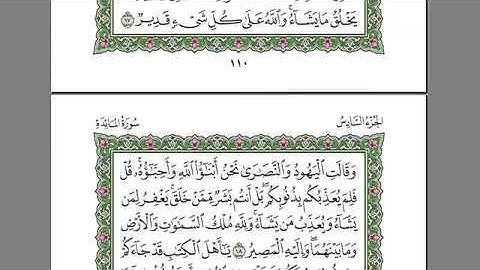 يَخْلُقُ مَا يَشَآءُ ۚ وَٱللَّهُ عَلَىٰ كُلِّ شَىْءٍ قَدِيرٌ ١٧
١١٠
الجزء السادس
سورة المائدة
وَقَالَتِ ٱلْيَهُودُ وَٱلنَّصَٰرَىٰ نَحْنُ أَبْنَٰٓؤُا۟ ٱللَّهِ وَأَحِبَّٰٓؤُهُۥ ۚ قُلْ
فَلِمَ يُعَذِّبُكُم بِذُنُوبِكُم ۖ بَلْ أَنتُم بَشَرٌ مِّمَّنْ خَلَقَ ۚ يَغْفِرُ لِمَن
يَشَآءُ وَيُعَذِّبُ مَن يَشَآءُ ۚ وَلِلَّهِ مُلْكُ ٱلسَّمَٰوَٰتِ وَٱلْأَرْضِ
وَمَا بَيْنَهُمَا ۖ وَإِلَيْهِ ٱلْمَصِيرُ ١٨ يَٰٓأَهْلَ ٱلْكِتَٰبِ قَدْ جَآءَكُمْ